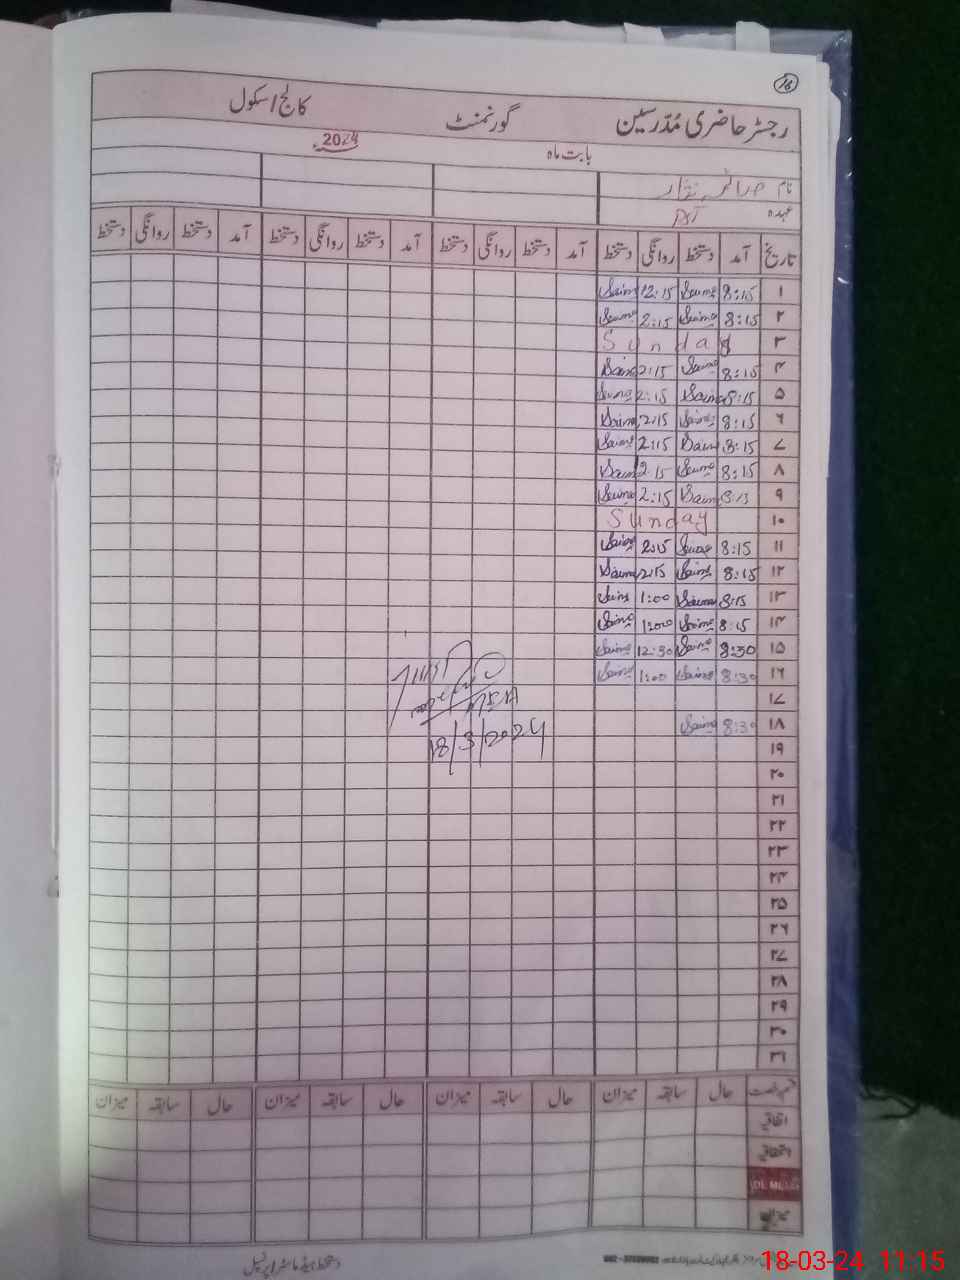 16
رجسٹر حاضری مُدرسین گورنمنٹ کالج / اسکول
بابت ماہ 2024
نام صائمہ نثار
عہدہ
تاریخ آمد دستخط روانگی دستخط آمد دستخط روانگی دستخط آمد دستخط روانگی دستخط آمد دستخط روانگی دستخط
۱ 8:15 Saima 12:15 Saima
۲ 8:15 Saima 2:15 Saima
۳ Sunday
۴ 8:15 Saima 2:15 Saima
۵ 8:15 Saima 2:15 Saima
۶ 8:15 Saima 2:15 Saima
۷ 8:15 Saima 2:15 Saima
۸ 8:15 Saima 2:15 Saima
۹ 8:15 Saima 2:15 Saima
۱۰ Sunday
۱۱ 8:15 Saima 2:15 Saima
۱۲ 8:15 Saima 2:15 Saima
۱۳ 8:15 Saima 1:00 Saima
۱۴ 8:15 Saima 1:00 Saima
۱۵ 8:30 Saima 12:30 Saima
۱۶ 8:30 Saima 1:00 Saima
۱۷
۱۸ 8:30 Saima
18/3/2024
۱۹
۲۰
۲۱
۲۲
۲۳
۲۴
۲۵
۲۶
۲۷
۲۸
۲۹
۳۰
۳۱
حال سابقہ میزان حال سابقہ میزان حال سابقہ میزان حال سابقہ میزان
اتفاقیہ
استحقاقیہ
میزان
دستخط ہیڈ ماسٹر / پرنسپل
18-03-24 11:15